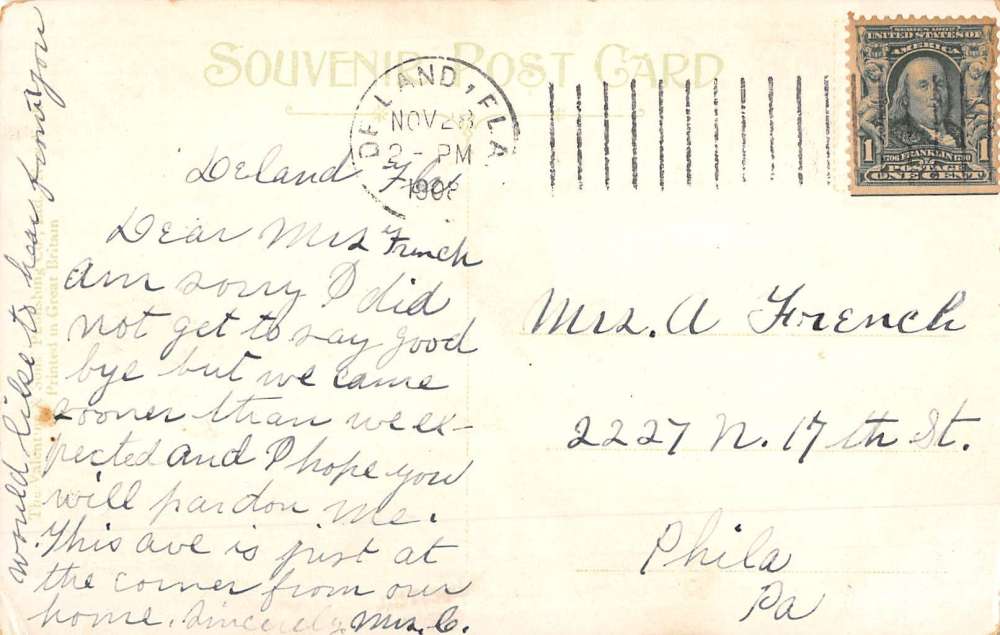 SOUVENIR POST CARD
DE LAND, FLA
NOV 28
2 - PM
1908
SERIES 1902
UNITED STATES OF
AMERICA
1 1706 FRANKLIN 1790 1
POSTAGE
ONE CENT
Deland Fla
Dear Mrs French
Am sorry I did
not get to say good
bye but we came
sooner than we ex-
pected and I hope you
will pardon me.
This ave is just at
the corner from our
home. Sincerely, Mrs. C.
would like to hear from you
Mrs. A French
2227 N. 17th St.
Phila
Pa
The Valentine
Printed in Great Britain